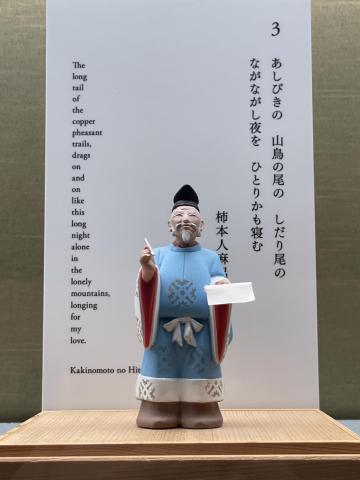 3
あしびきの　山鳥の尾の　しだり尾の
ながながし夜を　ひとりかも寝む
柿本人麻呂
The
long
tail
of
the
copper
pheasant
trails,
drags
on
and
on
like
this
long
night
alone
in
the
lonely
mountains,
longing
for
my
love.
Kakinomoto no Hit